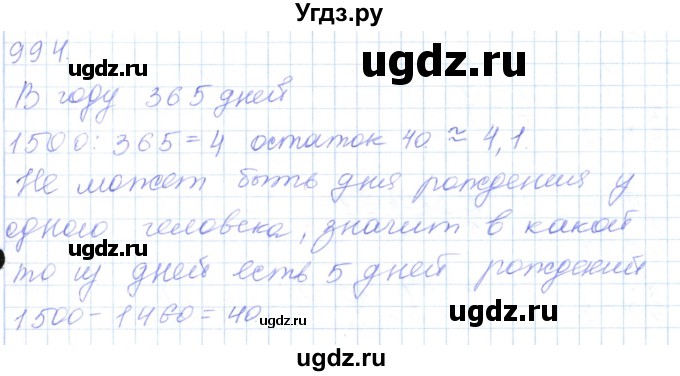 Угдз.ру
994.
ugdz.ru
ugdz.ru
В году 365 дней
ugdz.ru
1500 : 365 = 4 остаток 40 ≈ 4,1.
Не может быть дня рождения у
ugdz.ru
одного человека, значит в какой
ugdz.ru
то из дней есть 5 дней рождений
ugdz.ru
1500 - 1460 = 40
ugdz.ru
ugdz.ru